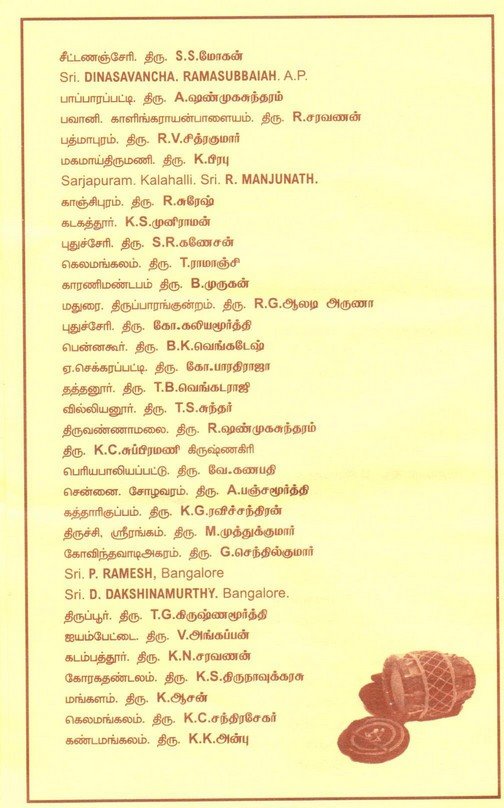 சீட்டணஞ்சேரி. திரு. S.S.மோகன்
Sri. DINASAVANCHA. RAMASUBBAIAH. A.P.
பாப்பாரப்பட்டி. திரு. A.ஷண்முகசுந்தரம்
பவானி. காளிங்கராயன்பாளையம். திரு. R.சரவணன்
பத்மாபுரம். திரு. R.V.சித்ரகுமார்
மகமாய்திருமணி. திரு. K.பிரபு
Sarjapuram. Kalahalli. Sri. R. MANJUNATH.
காஞ்சிபுரம். திரு. R.சுரேஷ்
கடகத்தூர். திரு. K.S.முனிராமன்
புதுச்சேரி. திரு. S.R.கணேசன்
கெலமங்கலம். திரு. T.ராமாஞ்சி
காரணிமண்டபம் திரு. B.முருகன்
மதுரை. திருப்பாரங்குன்றம். திரு. R.G.ஆலடி அருணா
புதுச்சேரி. திரு. கோ.கலியமூர்த்தி
பென்னகூர். திரு. B.K.வெங்கடேஷ்
ஏ.செக்கரப்பட்டி. திரு. கோ.பாரதிராஜா
தத்தனூர். திரு. T.B.வெங்கடராஜி
வில்லியனூர். திரு. T.S.சுந்தர்
திருவண்ணாமலை. திரு. R.ஷண்முகசுந்தரம்
திரு. K.C.சுப்பிரமணி கிருஷ்ணகிரி
பெரியபாலியப்பட்டு. திரு. வே.கணபதி
சென்னை. சோழவரம். திரு. A.பஞ்சமூர்த்தி
கத்தாரிகுப்பம். திரு. K.G.ரவிச்சந்திரன்
திருச்சி. ஸ்ரீரங்கம். திரு. M.முத்துக்குமார்
கோவிந்தவாடிஅகரம். திரு. G.செந்தில்குமார்
Sri. P. RAMESH, Bangalore
Sri. D. DAKSHINAMURTHY. Bangalore.
திருப்பூர். திரு. T.G.கிருஷ்ணமூர்த்தி
ஐயம்பேட்டை. திரு. V.அங்கப்பன்
கடம்பத்தூர். திரு. K.N.சரவணன்
கோரகதண்டலம். திரு. K.S.திருநாவுக்கரசு
மங்களம். திரு. K.ஆசன்
கெலமங்கலம். திரு. K.C.சந்திரசேகர்
கண்டமங்கலம். திரு. K.K.அன்பு